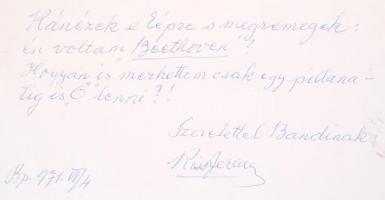 Ránézek e képre s megremegek:
én voltam "Beethoven"?
Hogyan is merhettem csak egy pillana-
tig is "Ő" lenni?!
Szeretettel Bandinak
Kiss Ferenc
Bp. 971. VII/4